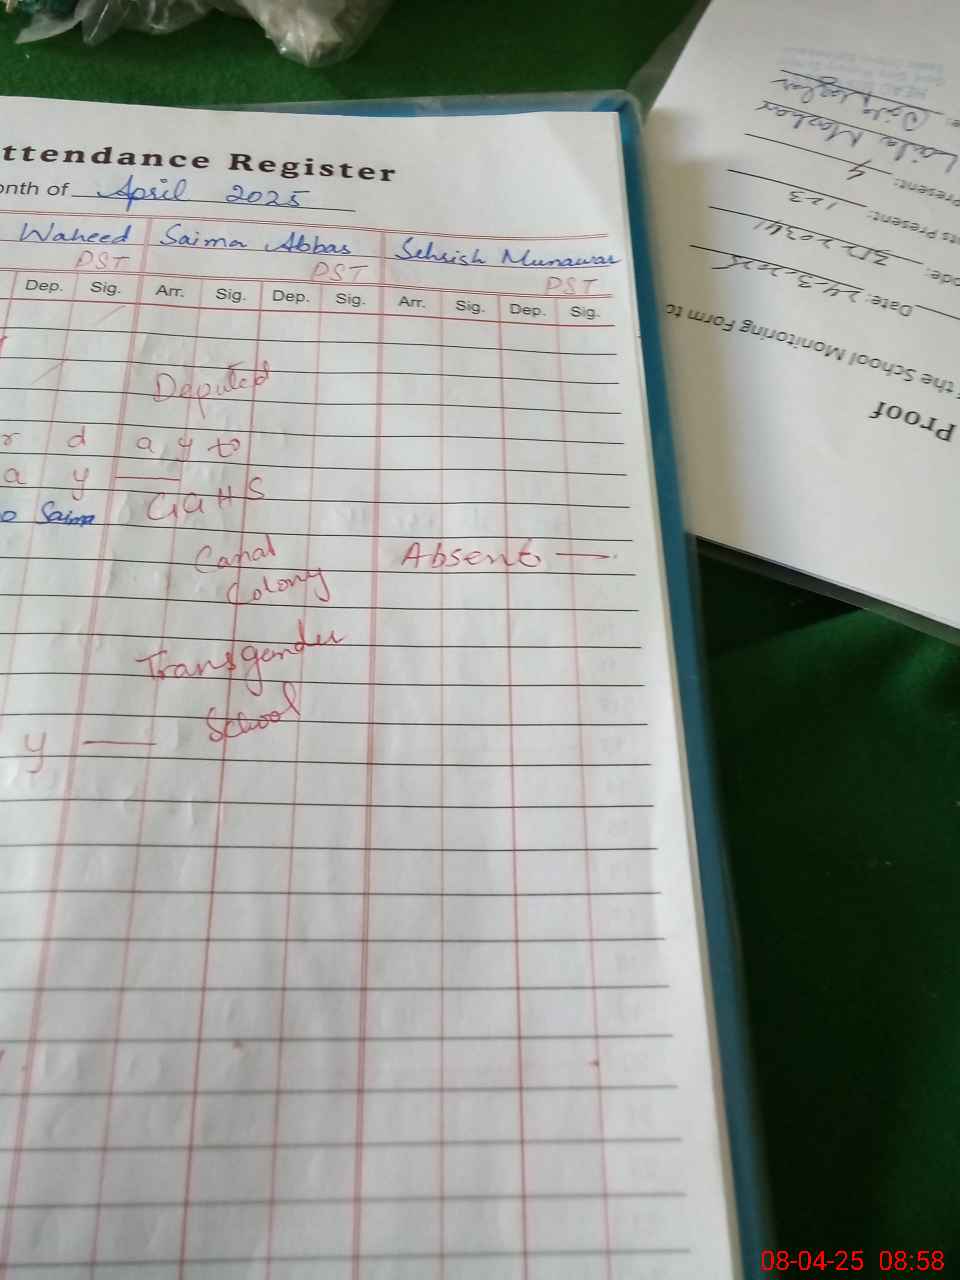 ttendance Register
onth of April 2025
Waheed Saima Abbas Sehrish Munawar
PST PST PST
Dep. Sig. Arr. Sig. Dep. Sig. Arr. Sig. Dep. Sig.
Deputed
r d a y to
a y
GGHS
Saima
Canal Absent
Colony
Transgender
School
y
Proof
the School Monitoring Form to
Date: 24-3-2025
ode:
ts Present: 123
resent: 4
Laila Mazhar
08-04-25 08:58